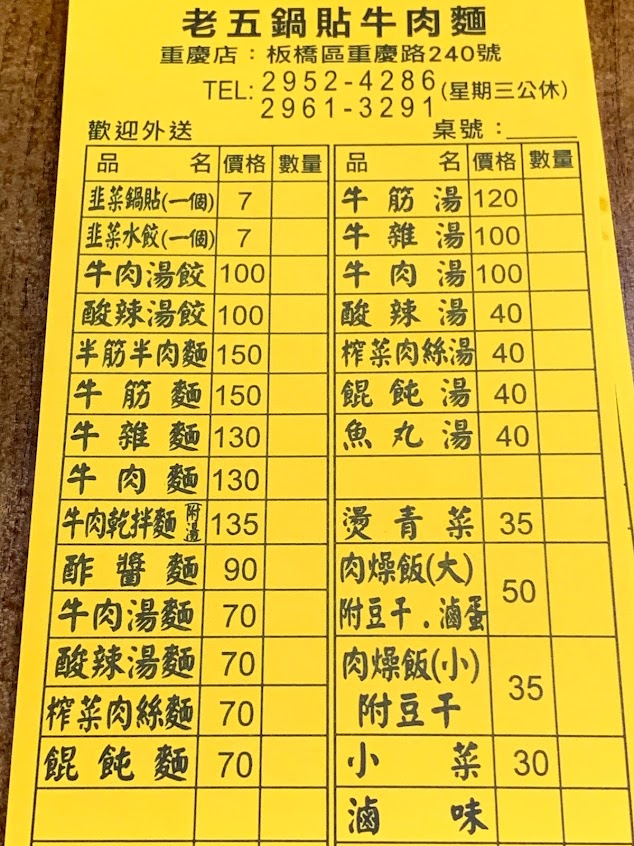 老五鍋貼牛肉麵
重慶店：板橋區重慶路240號
TEL: 2952-4286 (星期三公休)
2961-3291
歡迎外送 桌號：
品名 價格 數量
韭菜鍋貼(一個) 7
韭菜水餃(一個) 7
牛肉湯餃 100
酸辣湯餃 100
半筋半肉麵 150
牛筋麵 150
牛雜麵 130
牛肉麵 130
牛肉乾拌麵 附湯 135
酢醬麵 90
牛肉湯麵 70
酸辣湯麵 70
榨菜肉絲麵 70
餛飩麵 70
品名 價格 數量
牛筋湯 120
牛雜湯 100
牛肉湯 100
酸辣湯 40
榨菜肉絲湯 40
餛飩湯 40
魚丸湯 40
燙青菜 35
肉燥飯(大) 50
附豆干.滷蛋
肉燥飯(小) 35
附豆干
小菜 30
滷味